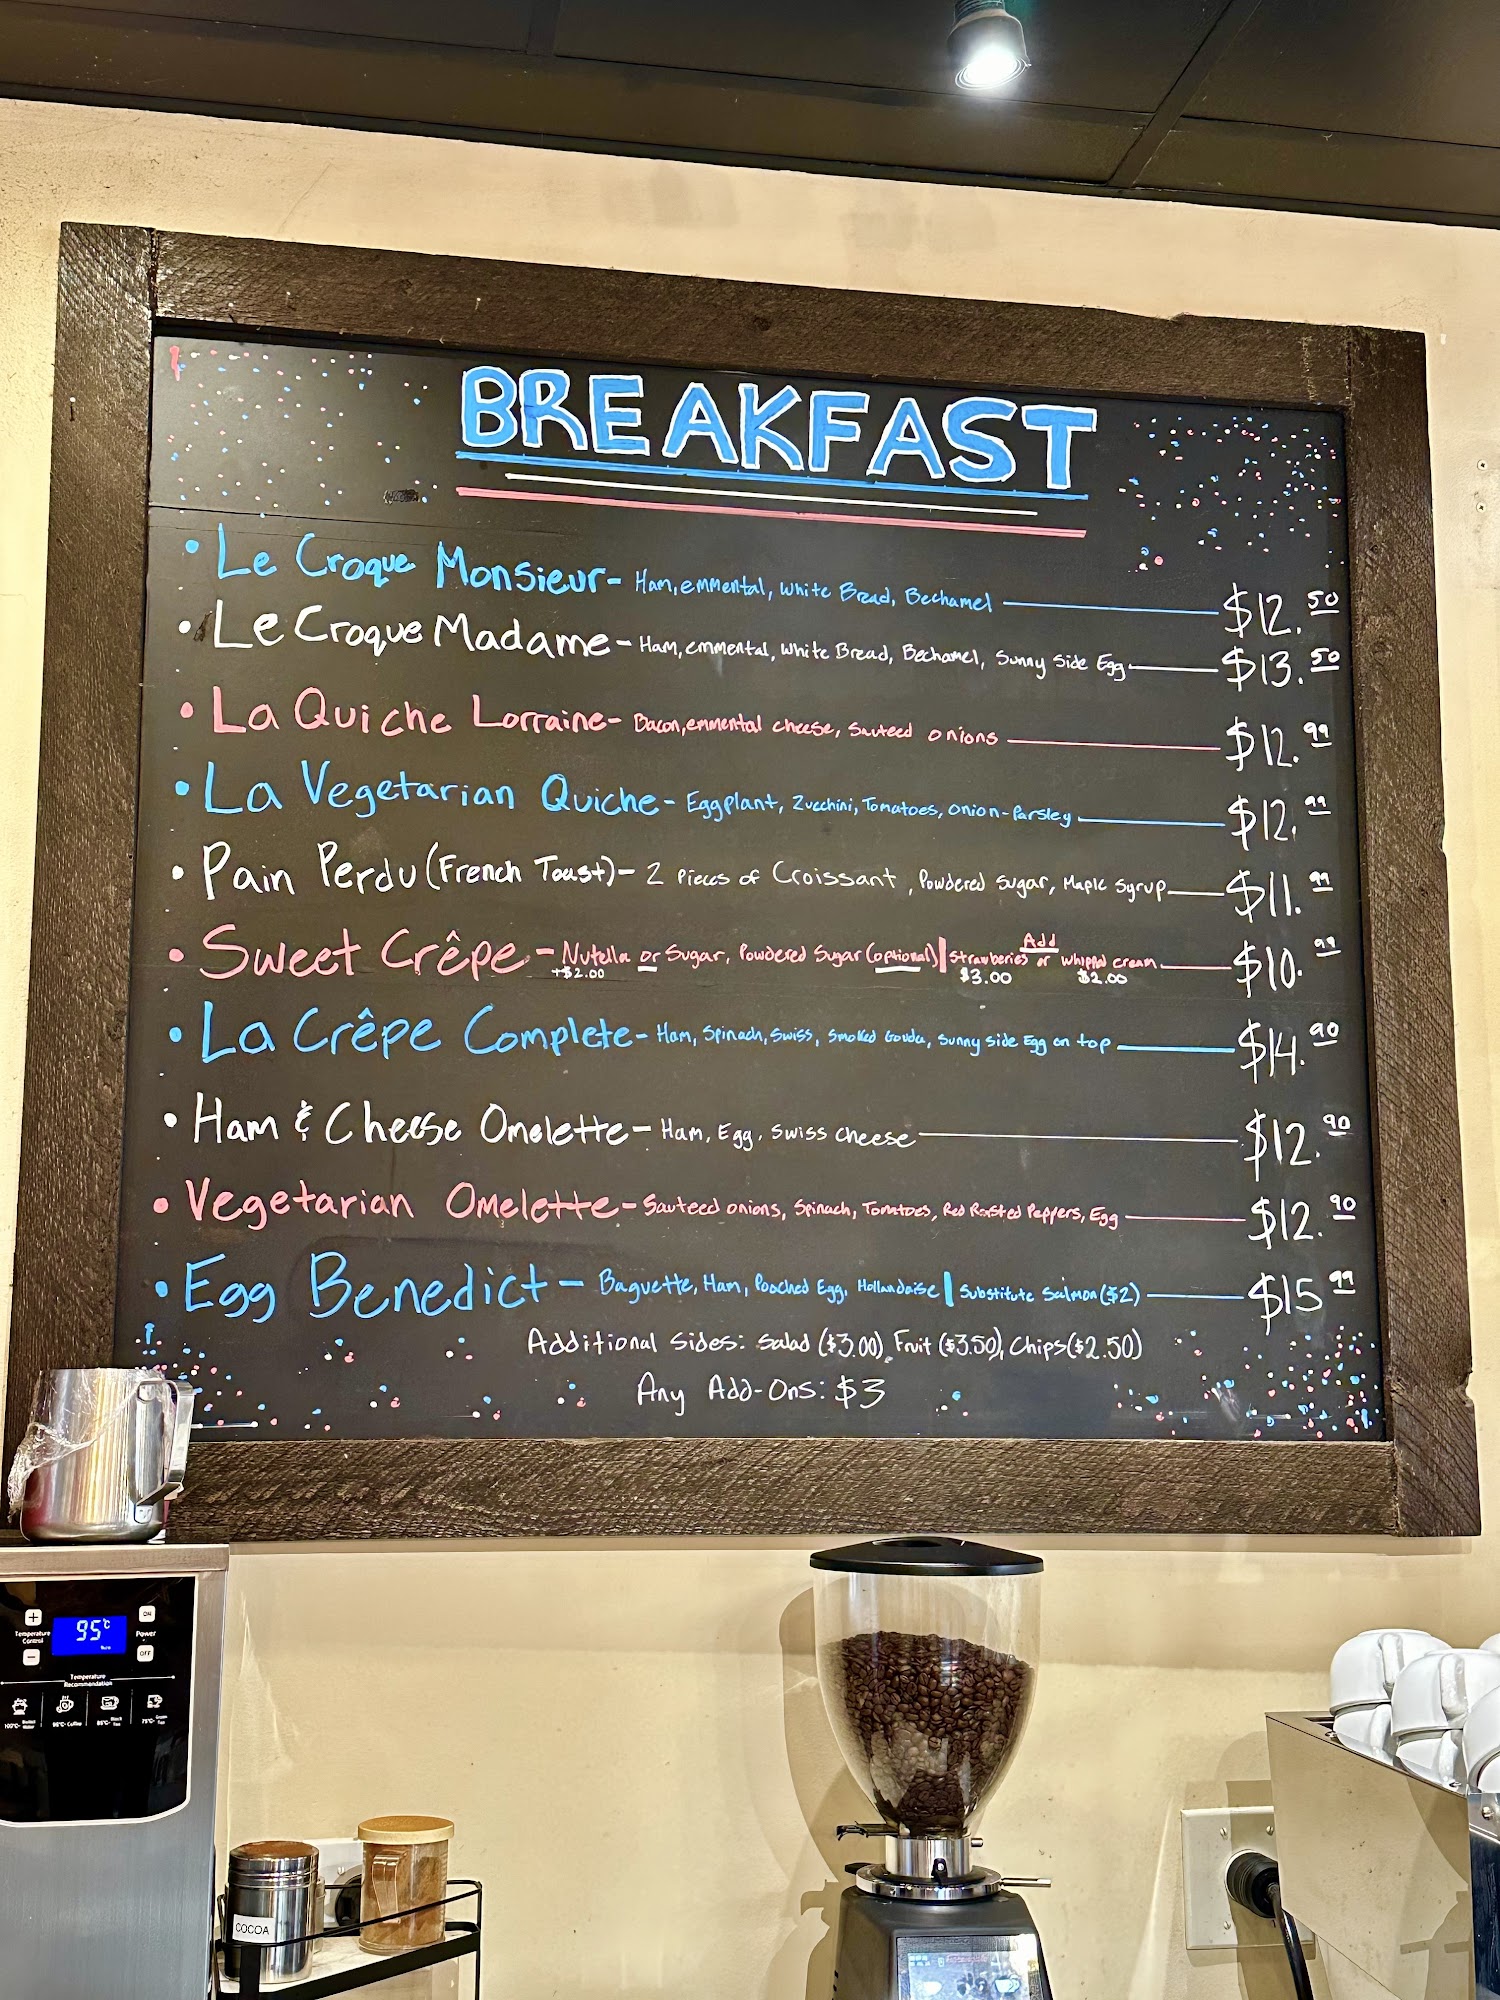 BREAKFAST
• Le Croque Monsieur - Ham, emmental, White Bread, Bechamel $12.50
• Le Croque Madame - Ham, emmental, White Bread, Bechamel, Sunny Side Egg $13.50
• La Quiche Lorraine - Bacon, emmental cheese, Sauteed onions $12.99
• La Vegetarian Quiche - Eggplant, Zucchini, Tomatoes, onion-Parsley $12.99
• Pain Perdu (French Toast) - 2 Pieces of Croissant, Powdered Sugar, Maple Syrup $11.99
• Sweet Crêpe - Nutella or Sugar, Powdered Sugar (optional) | Add Strawberies or whipped cream $10.99
+$2.00 $3.00 $2.00
• La Crêpe Complete - Ham, Spinach, Swiss, Smoked Gouda, Sunny Side Egg on top $14.90
• Ham & Cheese Omelette - Ham, Egg, Swiss Cheese $12.90
• Vegetarian Omelette - Sauteed onions, Spinach, Tomatoes, Red Roasted Peppers, Egg $12.90
• Egg Benedict - Baguette, Ham, Poached Egg, Hollandaise | Substitute Salmon ($2) $15.99
Additional Sides: Salad ($3.00), Fruit ($3.50), Chips ($2.50)
Any Add-Ons: $3
95°C
ON
Temperature Control
Power
OFF
Temperature Recommendation
COCOA